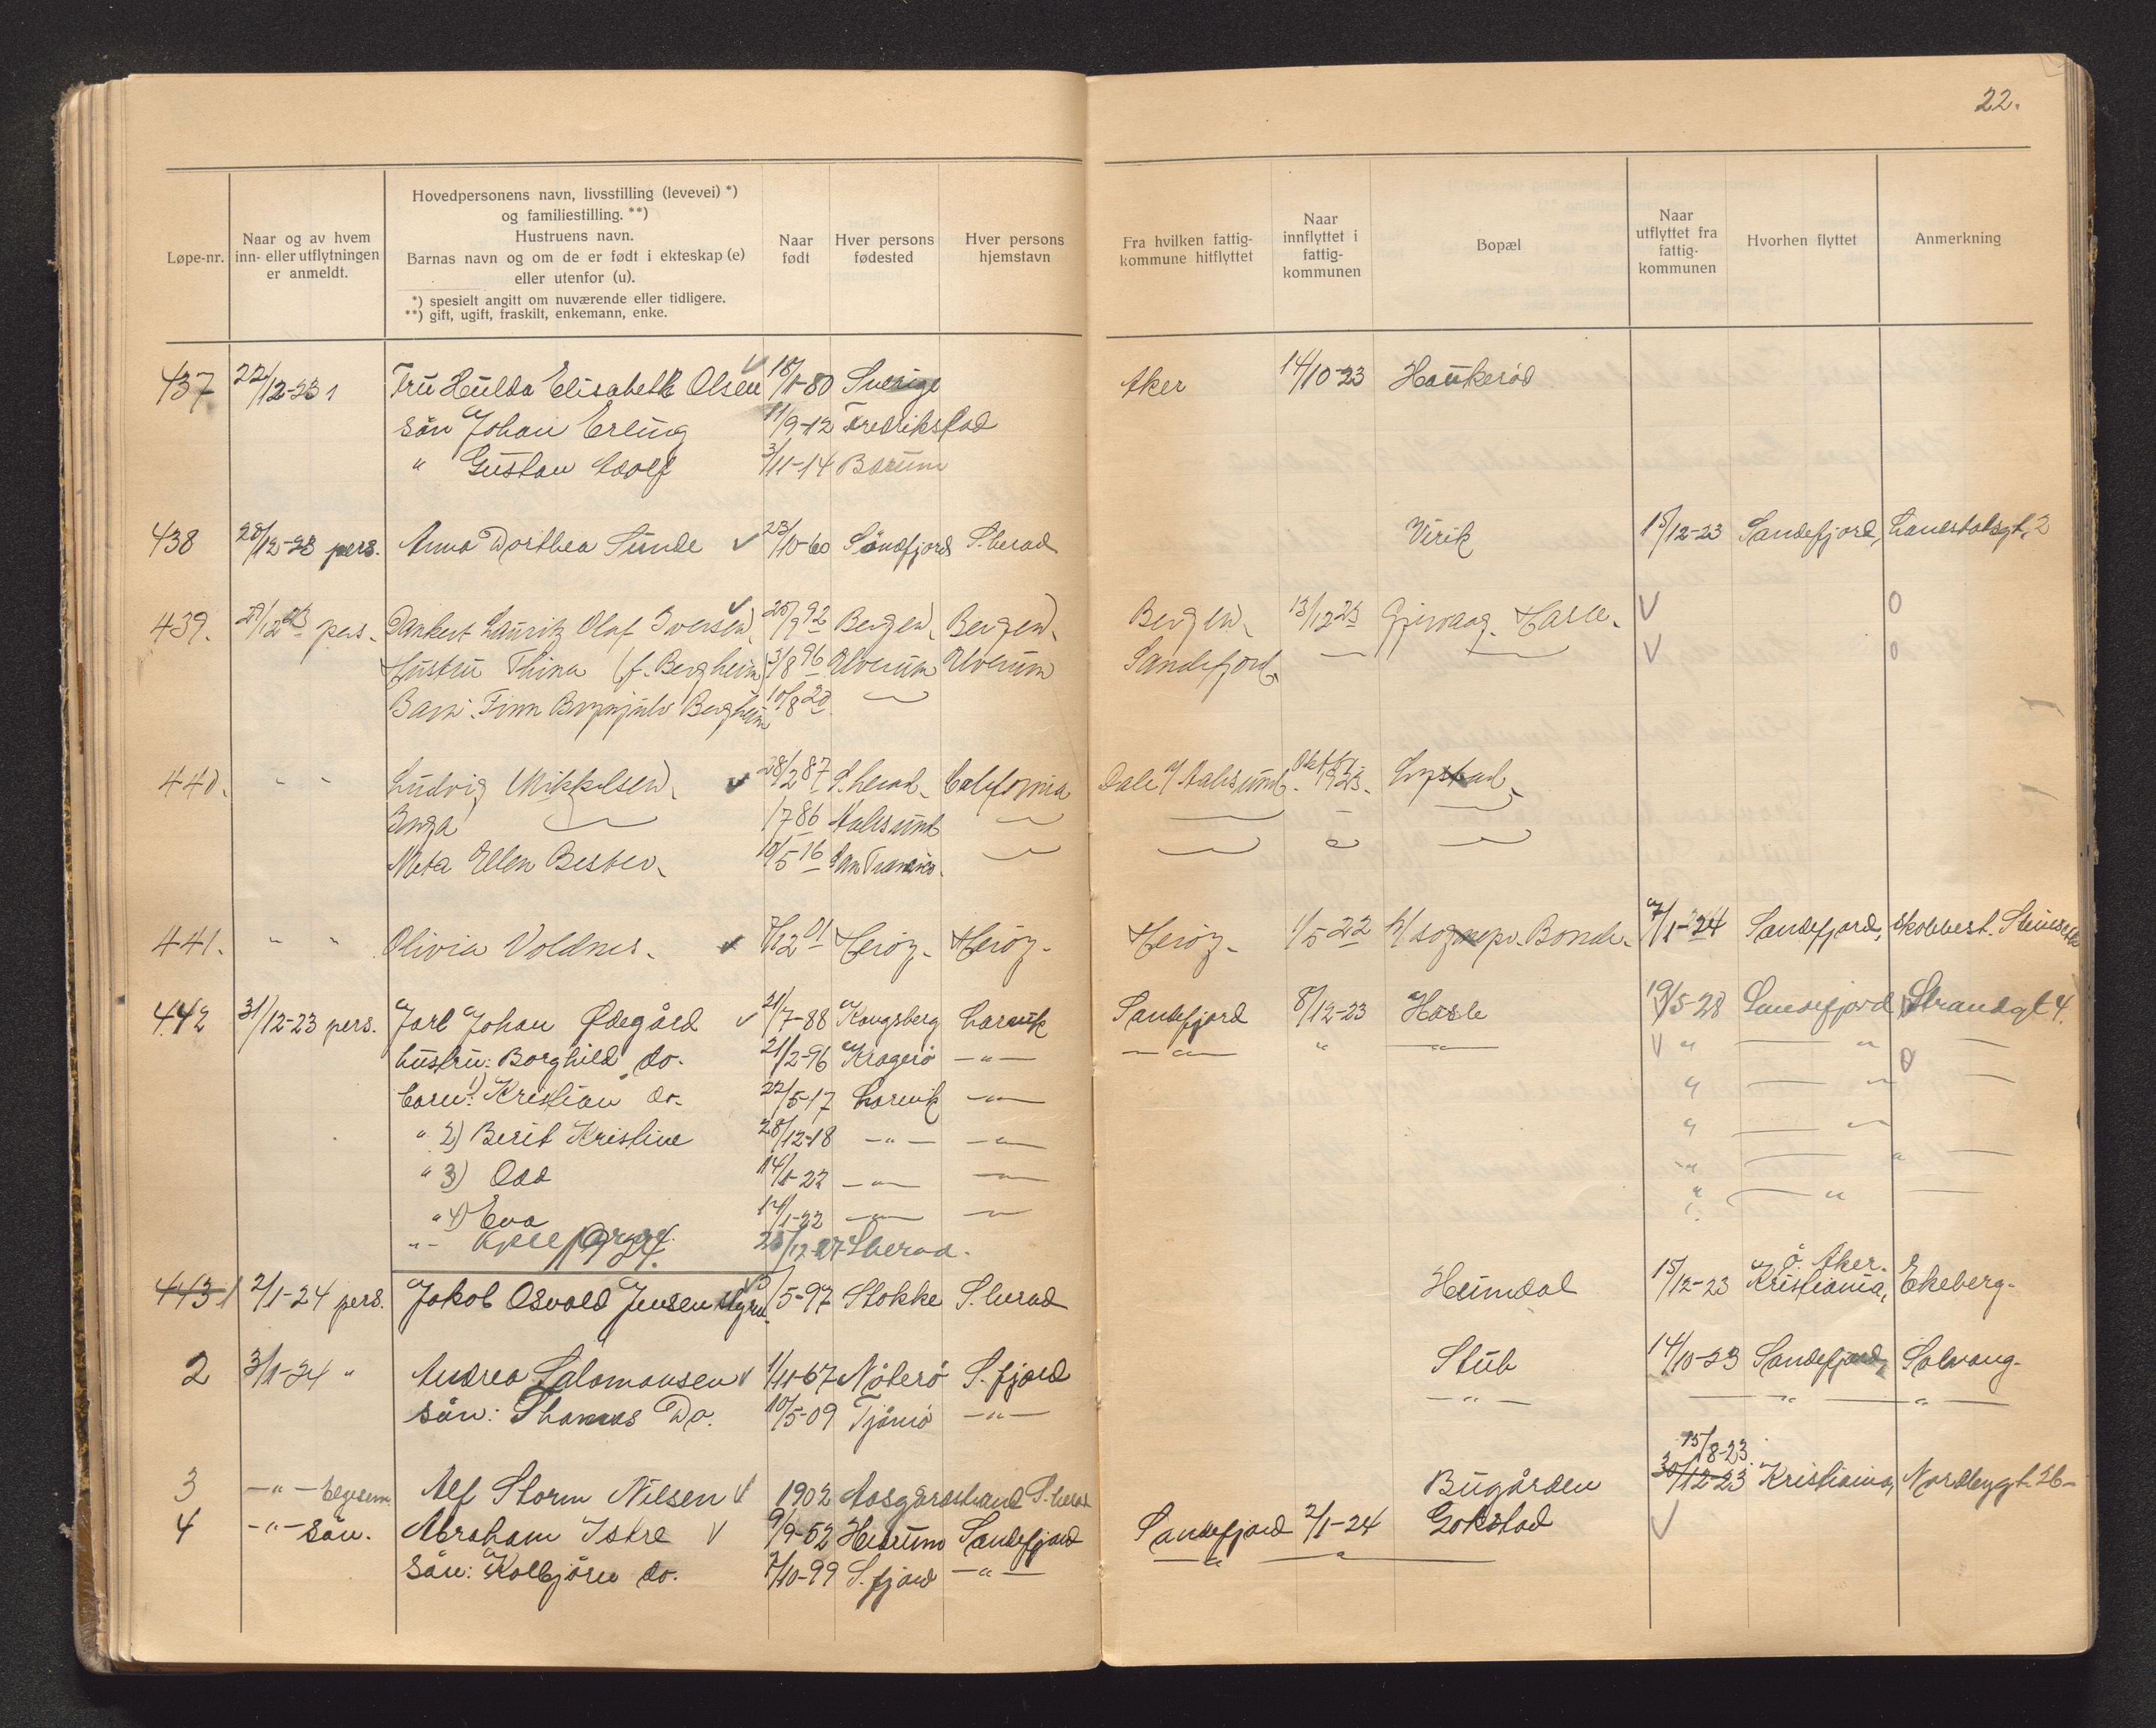 22.
Løpe-nr.
Naar og av hvem inn- eller utflytningen er anmeldt.
Hovedpersonens navn, livsstilling (levevei) *)
og familiestilling. **)
Hustruens navn.
Barnas navn og om de er født i ekteskap (e)
eller utenfor (u).
*) spesielt angitt om nuværende eller tidligere.
**) gift, ugift, fraskilt, enkemann, enke.
Naar født
Hver persons fødested
Hver persons hjemstavn
Fra hvilken fattig-kommune hitflyttet
Naar innflyttet i fattig-kommunen
Bopæl
Naar utflyttet fra fattig-kommunen
Hvorhen flyttet
Anmerkning
437 22/12-23 Fru Hulda Elisabeth Olsen 18/1-80 Sverige Aker 14/10-23 Haukerød
sön Johan Erling 11/9-12 Fredrikstad
" Gustav Adolf 3/11-14 Bærum
438 28/12-23 pers. Anna Dorthea Sunde 23/10-60 Søndfjord S.herad Virik 15/12-23 Sandefjord,
439. pers. Dankert Lauritz Olaf Iversen 92 Bergen, Bergen, Bergen, 13/12 23 Hasle.
Hustru Thina (f. Bergheim) 3/8 96 Elverum Elverum Sandefjord
Barn: Finn Bergheim 10/8 20
440. " " Ludvig Mikkelsen. 28/2 87 S.herad. California Dale p/ Aalesund. 1923.
Inga 1/7 86 Aalesund
Meta Ellen 10/5 16 San Francisco.
441. " " Olivia Voldnes. 7/12 01 Herøy. Herøy. Herøy. 1/5 22 h/ sognepr. Bonde. 7/1-24 Sandefjord,
442 31/12-23 pers. Jarl Johan Ødegård 21/7-88 Kongsberg Larvik Sandefjord 8/12-23 Hasle 19/5-28 Sandefjord Strandgt 4.
hustru: Borghild do. 21/2-96 Kragerø -"-
barn: 1) Kristian do. 22/5-17 Larvik -"-
" 2) Berit Kristine 28/12-18 -"- -"-
" 3) Odd 14/1-22 -"- -"-
" 4) Eva 14/1-22 -"- -"-
"- Kjell 27 S.herad.
1924.
443 1 2/1-24 pers. Jakob Osvald Jensen 5-97 Stokke S.herad Heimdal 15/12-23 Kristiania, Ø. Aker. Ekeberg.
2 3/1-24 " Andrea Salomonsen 1/11-67 Nøterø S.fjord Stub 14/10-23 Sandefjord, Solvang.
sön: Thomas Do. 10/5-09 Tjømø -"-
15/8-23.
3 -"- Alf Storm Nilsen 1902 Aasgårdstrand S.herad Bugården 30/12-23 Kristiania,
4 -"- sön. Abraham Istre 9/9-52 Hedrum Sandefjord Sandefjord 2/1-24 Gokstad
sön: Kolbjörn do. 7/10-99 S.fjord -"-